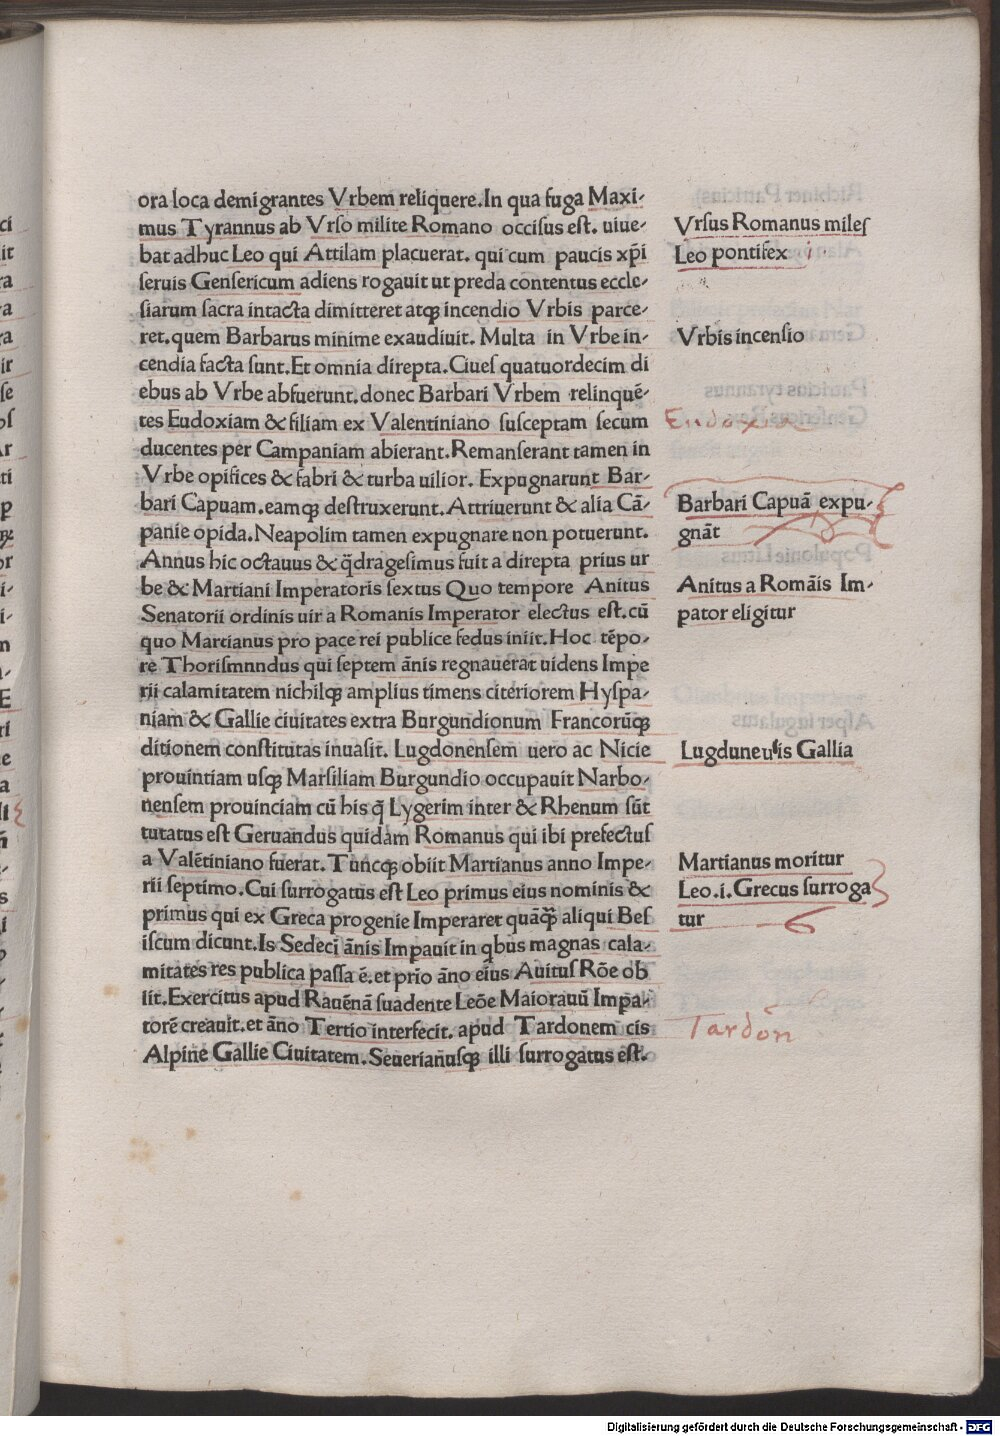 ora loca demigrantes Vrbem reliquere. In qua fuga Maxi-
mus Tyrannus ab Vrſo milite Romano occiſus eſt. uiue-
bat adhuc Leo qui Attilam placuerat. qui cum paucis xp̄i
ſeruis Genſericum adiens rogauit ut preda contentus eccle-
ſiarum ſacra intacta dimitteret atqꝫ incendio Vrbis parce-
ret. quem Barbarus minime exaudiuit. Multa in Vrbe in-
cendia facta ſunt. Et omnia direpta. Ciueſ quatuordecim di
ebus ab Vrbe abfuerunt. donec Barbari Vrbem relinquē-
tes Eudoxiam & filiam ex Valentiniano ſuſceptam ſecum
ducentes per Campaniam abierant. Remanſerant tamen in
Vrbe opifices & fabri & turba uilior. Expugnarunt Bar-
bari Capuam. eamqꝫ deſtruxerunt. Attriuerunt & alia Cā-
panie opida. Neapolim tamen expugnare non potuerunt.
Annus hic octauus & q̄dragesimus fuit a direpta prius ur
be & Martiani Imperatoris ſextus Quo tempore Anitus
Senatorii ordinis uir a Romanis Imperator electus eſt. cū
quo Martianus pro pace rei publice fedus iniit. Hoc tēpo-
re Thoriſmnndus qui ſeptem ānis regnauerat uidens Impe
rii calamitatem nichilqꝫ amplius timens citeriorem Hyſpa-
niam & Gallie ciuitates extra Burgundionum Francorūqꝫ
ditionem conſtitutas inuaſit. Lugdonenſem uero ac Nicie
prouintiam uſqꝫ Marſiliam Burgundio occupauit Narbo-
nenſem prouinciam cū his q̄ Lygerim inter & Rhenum ſūt
tutatus eſt Geruandus quidam Romanus qui ibi prefectuſ
a Valētiniano fuerat. Tuncqꝫ obiit Martianus anno Impe-
rii ſeptimo. Cui ſurrogatus eſt Leo primus eius nominis &
primus qui ex Greca progenie Imperaret quāqꝫ̄ aliqui Beſ
iſcum dicunt. Is Sedecī ānis Impauit in qbus magnas cala-
mitates res publica paſſa ē. et prīo āno eius Auituſ Rōe ob
iit. Exercitus apud Rauēnā ſuadente Leōe Maiorauū Impa-
torē creauit. et āno Tertio interfecit. apud Tardonem cis
Alpine Gallie Ciuitatem. Seuerian̄uſqꝫ illi ſurrogatus eſt.
Vrſus Romanus mileſ
Leo pontifex i
Vrbis incenſio
Eudoxia
Barbari Capuā expu-
gnāt
Anitus a Romāis Im-
pator eligitur
Lugduneuſis Gallia
Martianus moritur
Leo .i. Grecus ſurroga
tur
Tardōn
Digitalisierung gefördert durch die Deutsche Forschungsgemeinschaft - DFG